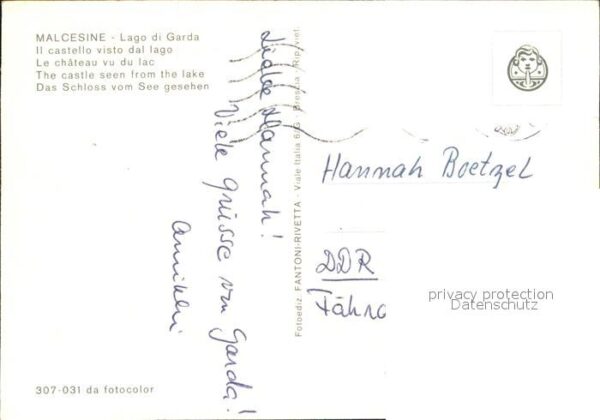 MALCESINE - Lago di Garda
Il castello visto dal lago
Le château vu du lac
The castle seen from the lake
Das Schloss vom See gesehen
Liebe Hannah!
Viele Grüsse von Garda!
Fotoediz. FANTONI-RIVETTA - Viale Italia 6/G - Brescia - Rip. viet.
Hannah Boetzel
DDR
privacy protection
Datenschutz
307-031 da fotocolor